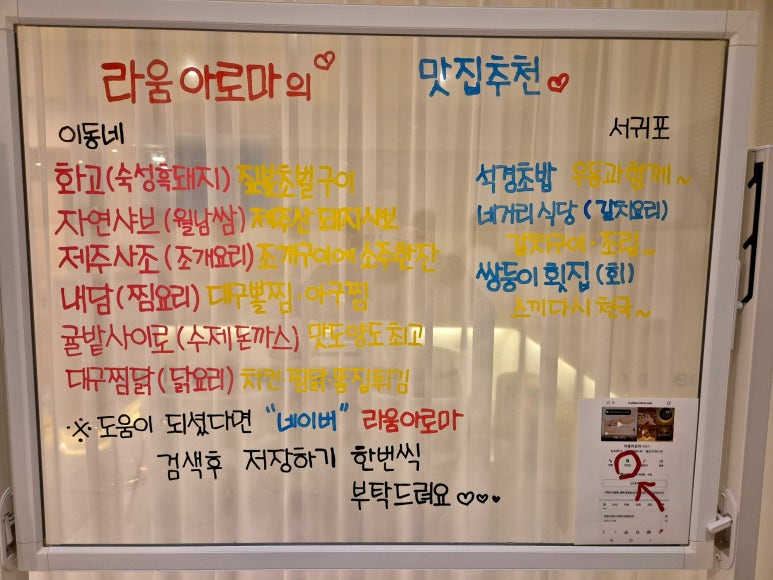 라움 아로마의 맛집추천
이동네
화고 (숙성흑돼지) 짚불초벌구이
자연샤브 (월남쌈) 제주산 돼지샤브
제주사조 (조개요리) 조개구이에 소주한잔
내담 (찜요리) 대구뽈찜·아구찜
귤밭사이로 (수제돈까스) 맛도양도최고
대구찜닭 (닭요리) 치킨·찜닭·똥집튀김
서귀포
석경초밥 우동과함께~
네거리식당 (갈치요리)
갈치구이·조림~
쌍둥이횟집 (회)
스끼다시 천국~
※ 도움이 되셨다면 "네이버" 라움아로마
검색후 저장하기 한번씩
부탁드려요 ♡♡♡